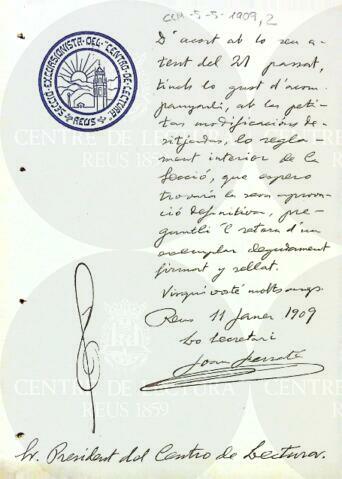 CCM-5-5-1909,2
SECCIÓ EXCURSIONISTA DEL "CENTRO DE LECTURA"
REUS
D'acort ab lo seu a-
tent del 21 passat,
tinch lo gust d'acom-
panyarli, ab las peti-
tas modificacions de-
sitjadas, lo regla-
ment interior de la
Secció, que espero
trovará la seva aprova-
ció definitiva, pre-
gantli 'l retorn d'un
exemplar degudament
firmat y sellat.
Visqui vosté molts anys.
Reus 11 janer 1909
Lo Secretari
Joan
Sr. President del Centro de Lectura.
CENTRE DE LECTURA
REUS 1859
CENTRE DE LECTURA
REUS 1859